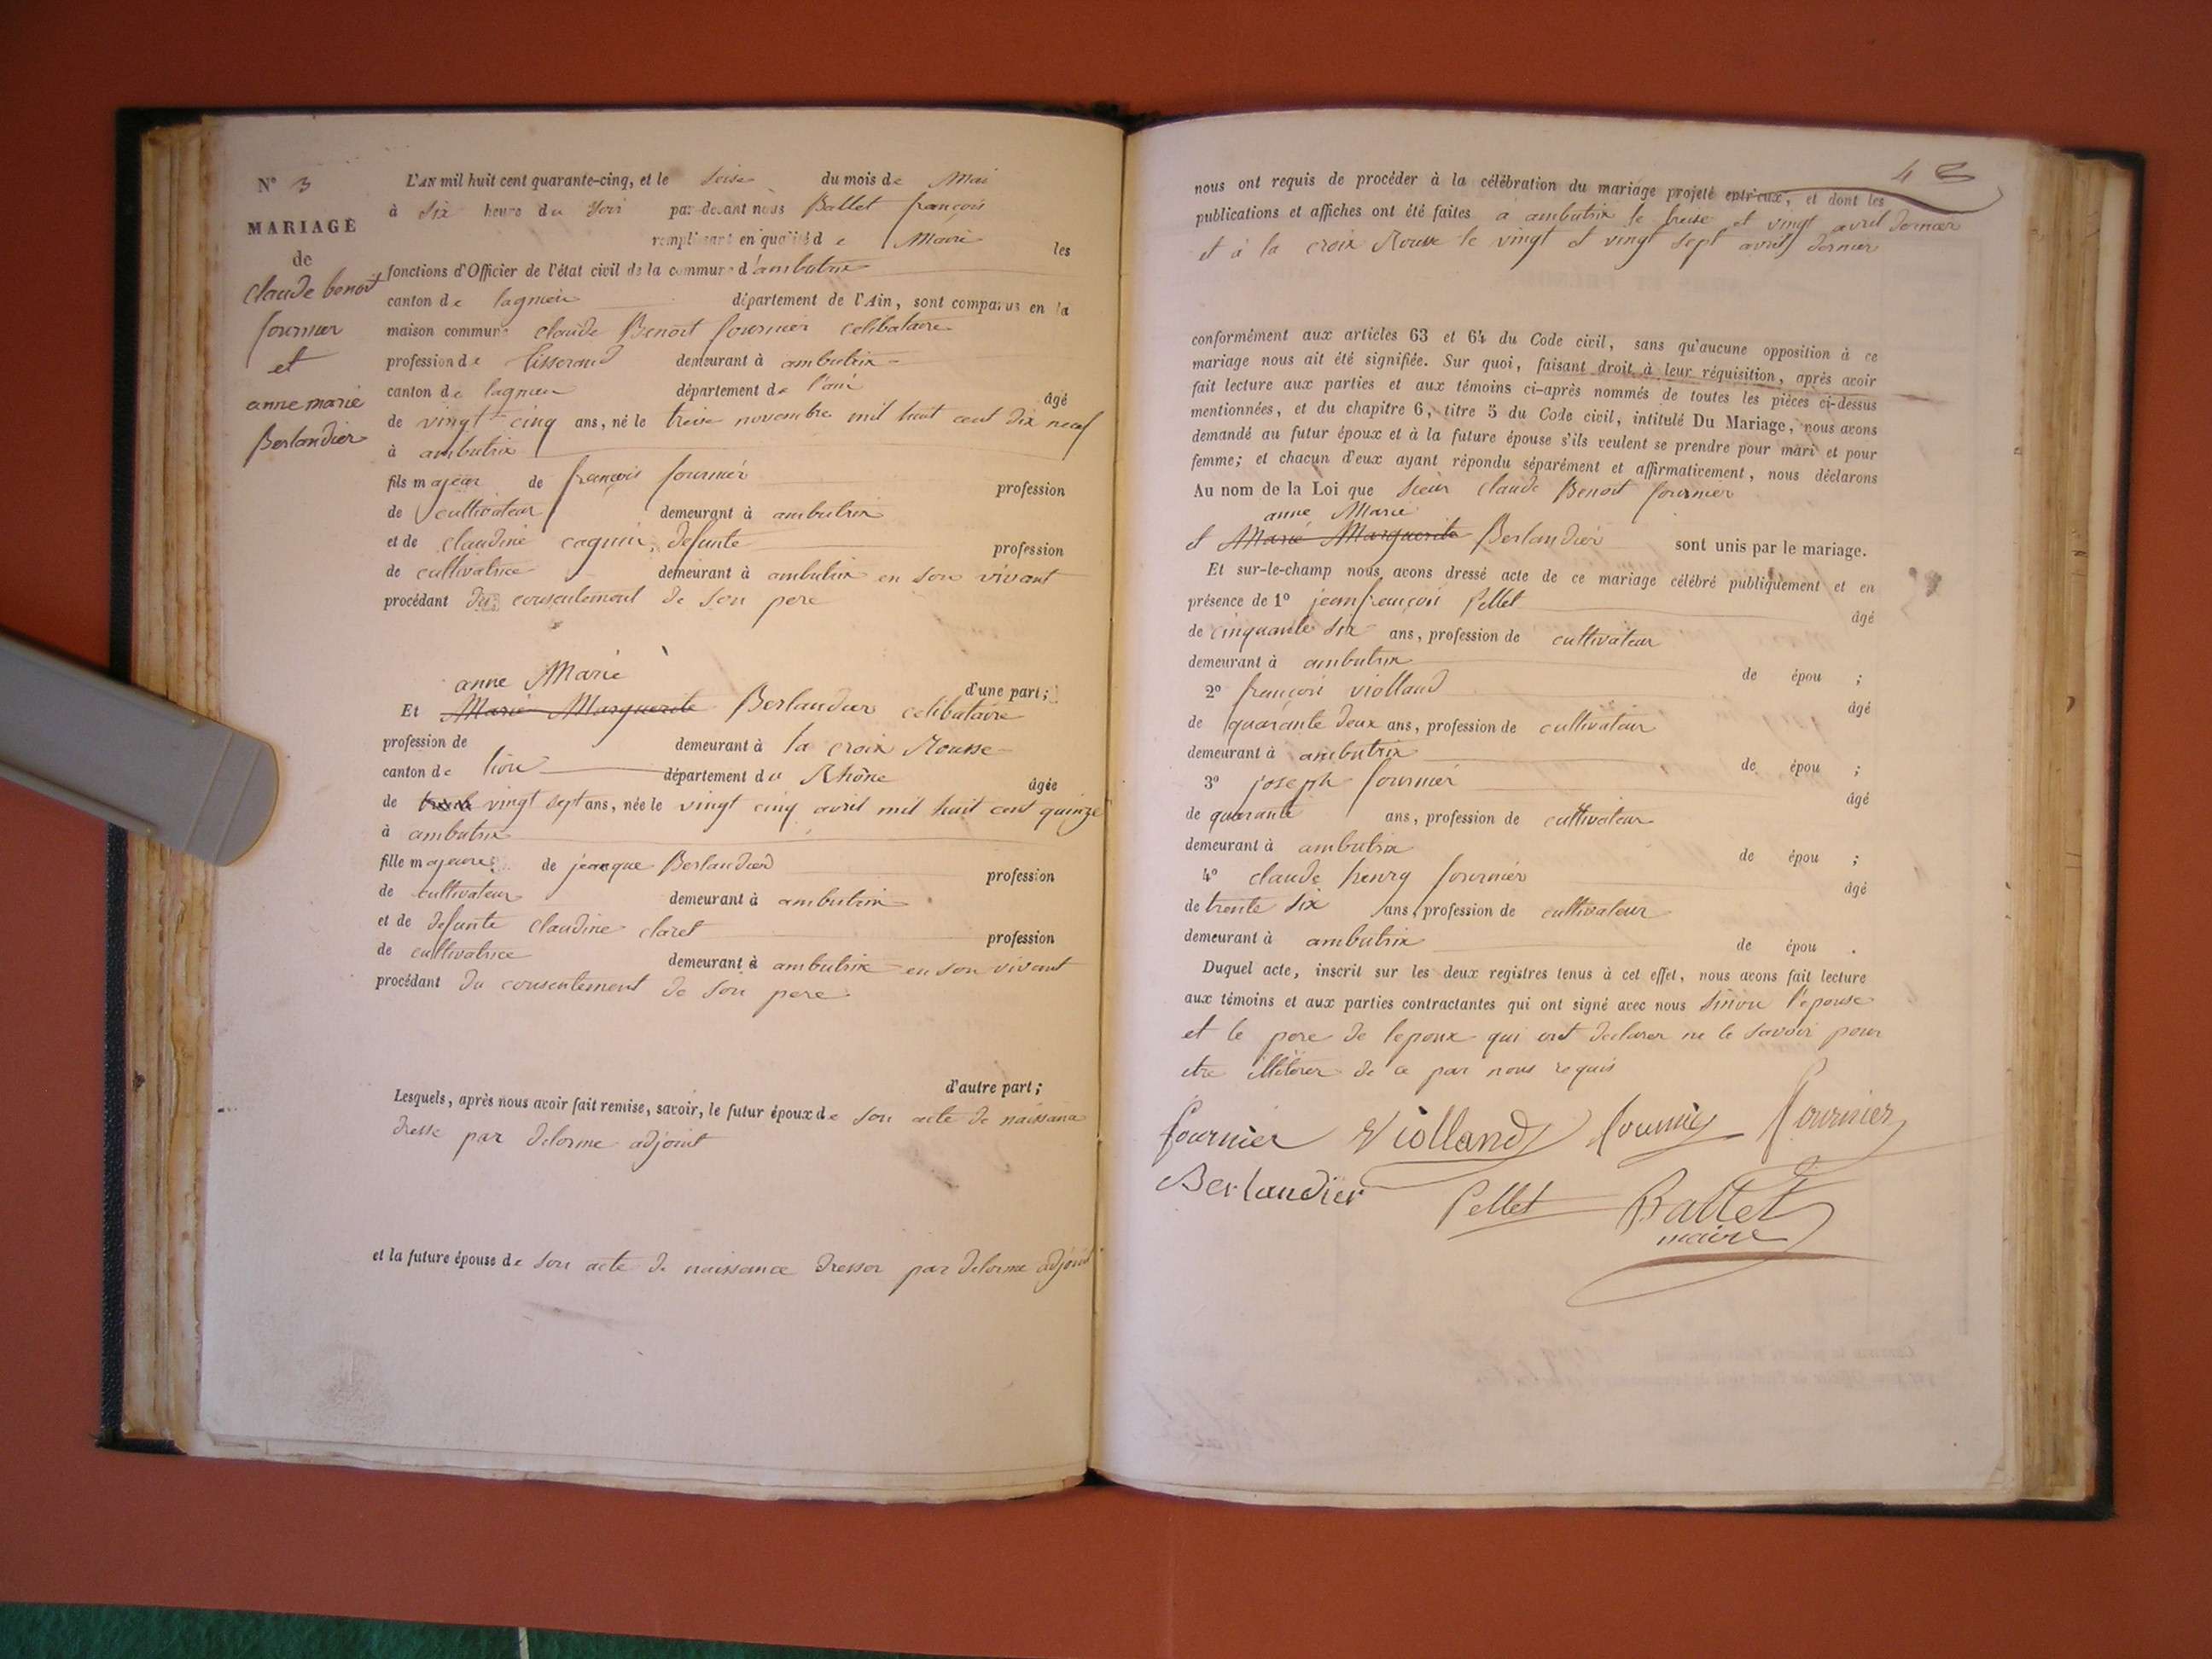 N° 3
MARIAGE
de
claude benoit
fournier
et
anne marie
Berlandier
L'AN mil huit cent quarante-cinq, et le seise du mois de Mai
à six heure du soir par devant nous Ballet françois
remplissant en qualité de Maire les
fonctions d'Officier de l'état civil de la commune d'ambutrix
canton de lagnieu département de l'Ain, sont comparus en la
maison commune claude Benoit fournier celibataire
profession de tisserand demeurant à ambutrix
canton de lagnieu département de l'ain âgé
de vingt cinq ans, né le treise novembre mil huit cent dix neuf
à ambutrix
fils majeur de françois fournier profession
de cultivateur demeurant à ambutrix
et de claudine cognier, defunte profession
de cultivatrice demeurant à ambutrix en son vivant
procédant du consentement de son pere
d'une part;
anne Marie
Et Marie Marguerite Berlandier celibataire
profession de demeurant à la croix Rousse
canton de lion département du Rhône âgée
de trente vingt sept ans, née le vingt cinq avril mil huit cent quinze
à ambutrix
fille majeure de jeacque Berlandier profession
de cultivateur demeurant à ambutrix
et de defunte claudine claret profession
de cultivatrice demeurant à ambutrix en son vivant
procédant du consentement de son pere
d'autre part;
Lesquels, après nous avoir fait remise, savoir, le futur époux de son acte de naissance
dresse par delorme adjoint
et la future épouse de son acte de naissance dresser par delorme adjoint
nous ont requis de procéder à la célébration du mariage projeté entr'eux, et dont les
publications et affiches ont été faites a ambutrix le treise et vingt avril dernier
et à la croix Rousse le vingt et vingt sept avril dernier
conformément aux articles 63 et 64 du Code civil, sans qu'aucune opposition à ce
mariage nous ait été signifiée. Sur quoi, faisant droit à leur réquisition, après avoir
fait lecture aux parties et aux témoins ci-après nommés de toutes les pièces ci-dessus
mentionnées, et du chapitre 6, titre 5 du Code civil, intitulé Du Mariage, nous avons
demandé au futur époux et à la future épouse s'ils veulent se prendre pour mari et pour
femme; et chacun d'eux ayant répondu séparément et affirmativement, nous déclarons
Au nom de la Loi que sieur claude Benoit fournier
anne Marie
et Marie Marguerite Berlandier sont unis par le mariage.
Et sur-le-champ nous avons dressé acte de ce mariage célébré publiquement et en
présence de 1° jean françois Pellet âgé
de cinquante six ans, profession de cultivateur
demeurant à ambutrix de épou ;
2° françois violland âgé
de quarante deux ans, profession de cultivateur
demeurant à ambutrix de épou ;
3° joseph fournier âgé
de quarante ans, profession de cultivateur
demeurant à ambutrix de épou ;
4° claude henry fournier âgé
de trente six ans, profession de cultivateur
demeurant à ambutrix de épou .
Duquel acte, inscrit sur les deux registres tenus à cet effet, nous avons fait lecture
aux témoins et aux parties contractantes qui ont signé avec nous sinon l'epouse
et le pere de lepoux qui ont declarer ne le savoir pour
etre illiterer de ce par nous requis
fournier Violland fournier fournier
Berlandier Pellet Ballet
maire